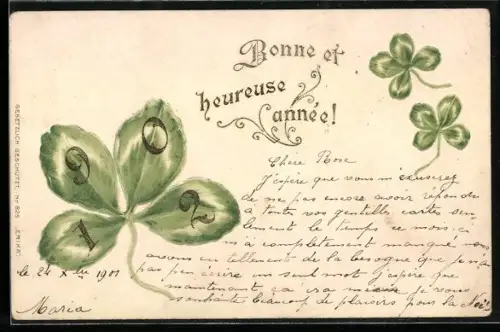 Bonne et
heureuse
année!
1902
GESETZLICH GESCHÜTZT. No 825
Chère Rose
J'espère que vous m'excuserez
de ne pas encore avoir répondu
à toutes vos gentilles cartes seu-
lement le temps ce mois ci
m'a complètement manqué nous
avons eu tellement de la besogne que je n'ai
pas pu écrire un seul mot j'espère que
maintenant, ça ira mieux Je vous
souhaite beaucoup de plaisirs pour la Noël
le 24 Xbre 1901
Maria